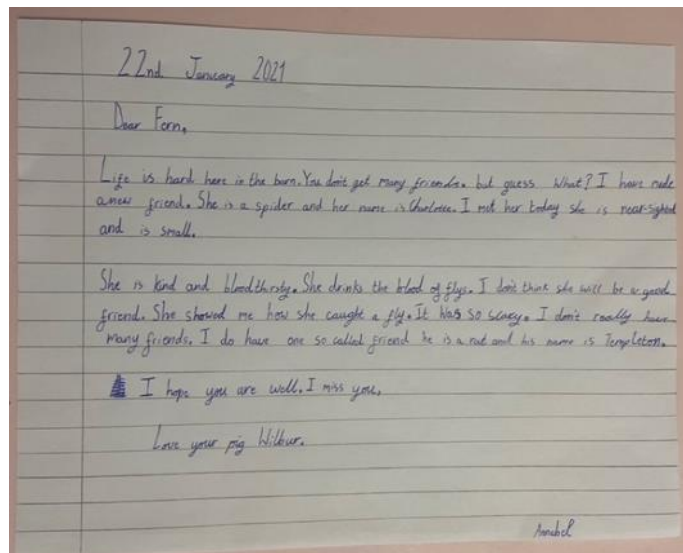 22nd January 2021
Dear Fern,
Life is hard here in the barn. You don't get many friends. but guess What? I have made
a new friend. She is a spider and her name is Charlotte. I met her today she is near-sighted
and is small.
She is kind and bloodthirsty. She drinks the blood of flys. I don't think she will be a good
friend. She showed me how she caught a fly. It was so scary. I don't really have
many friends. I do have one so called friend he is a rat and his name is Templeton.
I hope you are well. I miss you.
Love your pig Wilbur.
Annabel